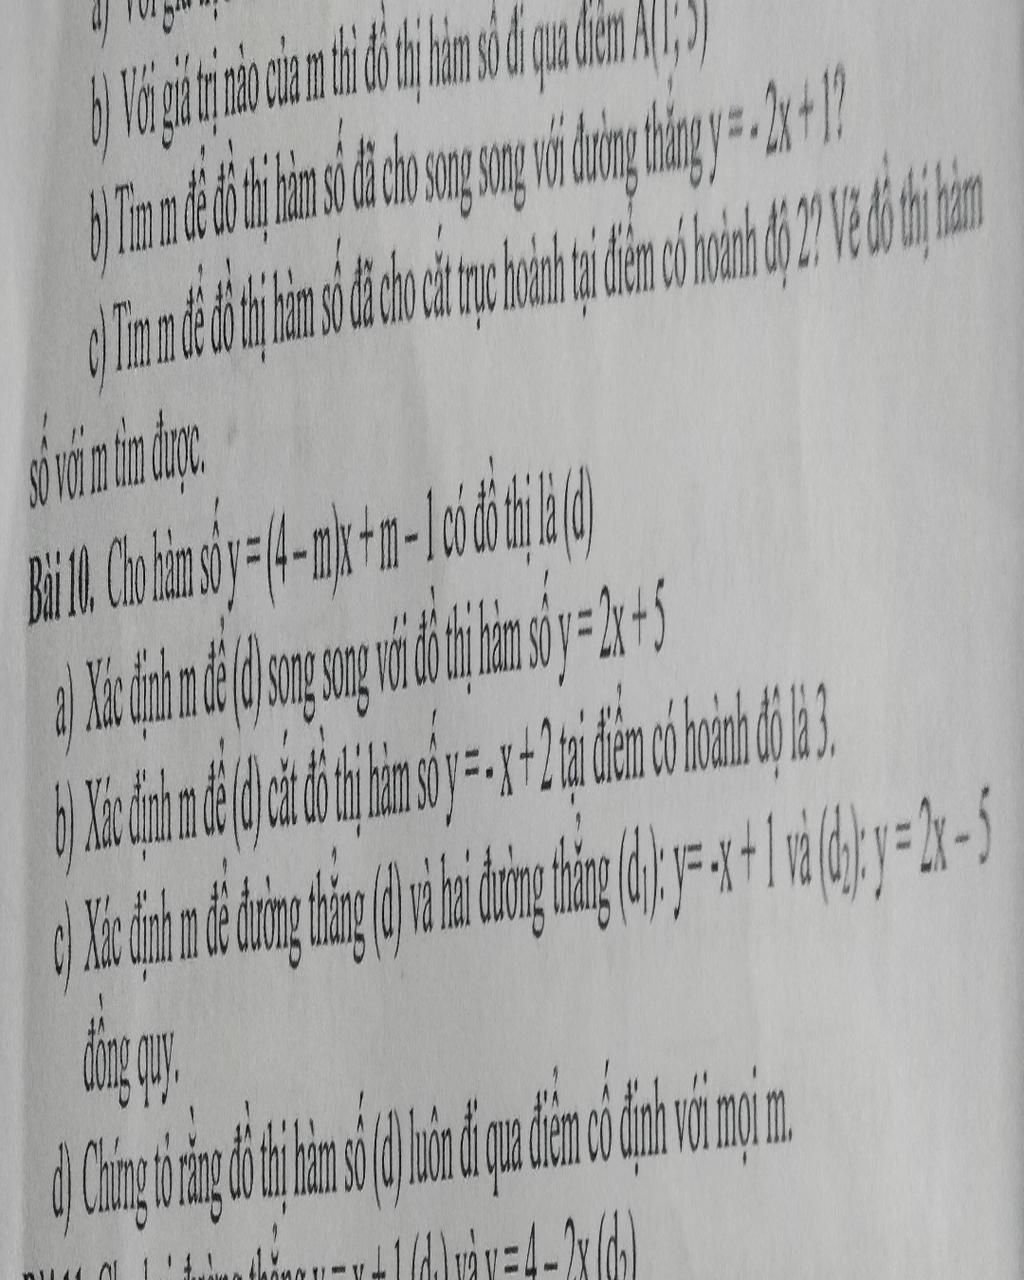 b) Với giá trị nào của m thì đồ thị hàm số đi qua điểm A(1; 5)
b) Tìm m để đồ thị hàm số đã cho song song với đường thẳng y = - 2x + 1?
c) Tìm m để đồ thị hàm số đã cho cắt trục hoành tại điểm có hoành độ 2? Vẽ đồ thị hàm
số với m tìm được.
Bài 10. Cho hàm số y = (4 – m)x + m – 1 có đồ thị là (d)
a) Xác định m để (d) song song với đồ thị hàm số y = 2x + 5
b) Xác định m để (d) cắt đồ thị hàm số y = - x + 2 tại điểm có hoành độ là 3.
c) Xác định m để đường thẳng (d) và hai đường thẳng (d₁): y= -x + 1 và (d₂): y = 2x – 5
đồng quy.
d) Chứng tỏ rằng đồ thị hàm số (d) luôn đi qua điểm cố định với mọi m.
đường thẳng y = x + 1 (d₁) và y = 4 – 2x (d₂)